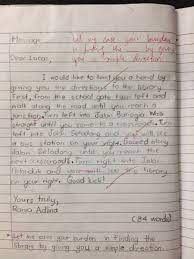 Message
Let me ease your burden
in finding the by giving
you a simple direction.
Dear Lucas,
I would like to lend you a hand by
giving you the directions to the library.
First, from the school gate, turn left and
walk along the road until you reach a
junction. Turn left into Jalan Bunga. Walk
straight until you come to a crossroads. Turn
left into Jalan Seladang and you will see
a bus station on your right. Proceed along
Jalan Seladang until you reach the
next crossroads. Turn right into Jalan
and you will see the library
on your right. Good luck!
Yours truly,
Adina
(84 words)
* Let me ease your burden in finding the
library by giving you a simple direction.